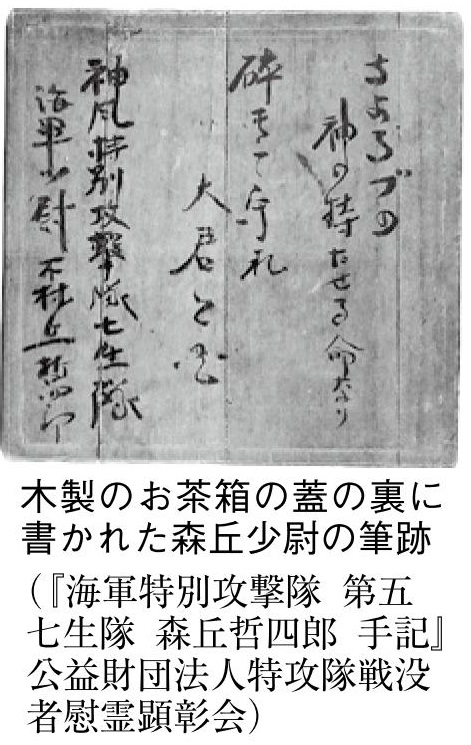 ちよろづの
神の持たせる命なり
砕きて守れ
大君と国
神風特別攻撃隊七生隊
海軍少尉 森丘哲四郎
木製のお茶箱の蓋の裏に
書かれた森丘少尉の筆跡
(『海軍特別攻撃隊 第五
七生隊 森丘哲四郎 手記』
公益財団法人特攻隊戦没
者慰霊顕彰会)